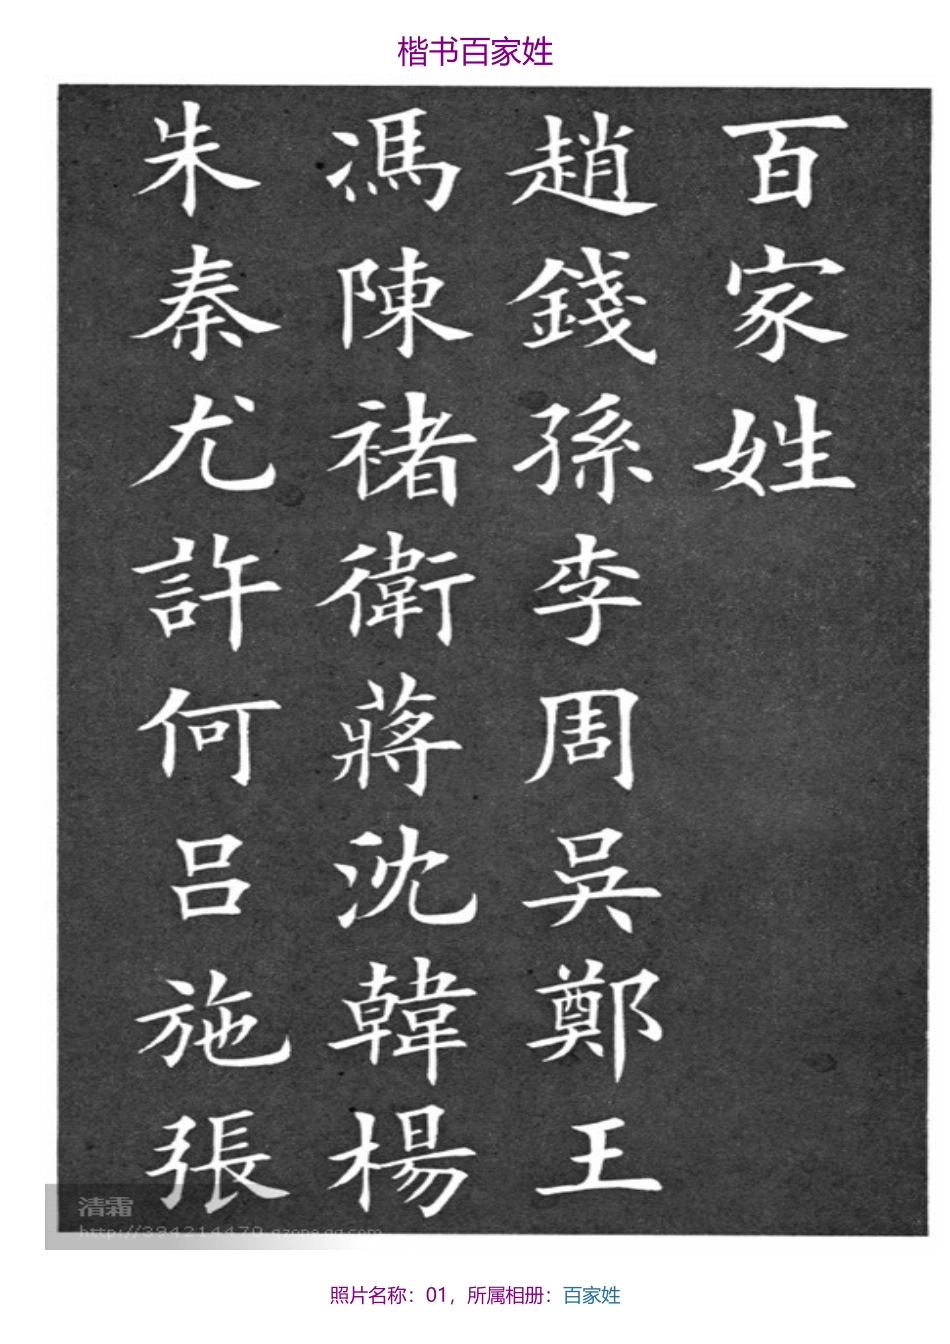 楷书百家姓
百家姓
趙錢孫李周吳鄭王
馮陳褚衛蔣沈韓楊
朱秦尤許何呂施張
清霜
http://394214479.qzone.qq.com
照片名称：01，所属相册：百家姓